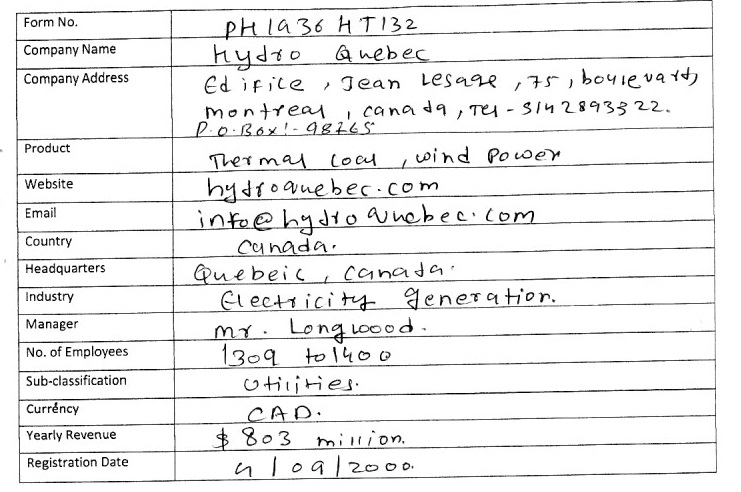 Form No. PH1936HT132
Company Name Hydro Quebec
Company Address Edifice, Jean Lesage, 75, boulevard,
montreal, canada, Tel - 3142893322.
P.O.Box:- 98265
Product Thermal Coal, wind Power
Website hydroquebec.com
Email info@hydroquebec.com
Country Canada.
Headquarters Quebeic, Canada.
Industry Electricity generation.
Manager mr. Longwoood.
No. of Employees 1309 to 1400
Sub-classification Utilities.
Currency CAD.
Yearly Revenue $ 803 million.
Registration Date 4/09/2000.